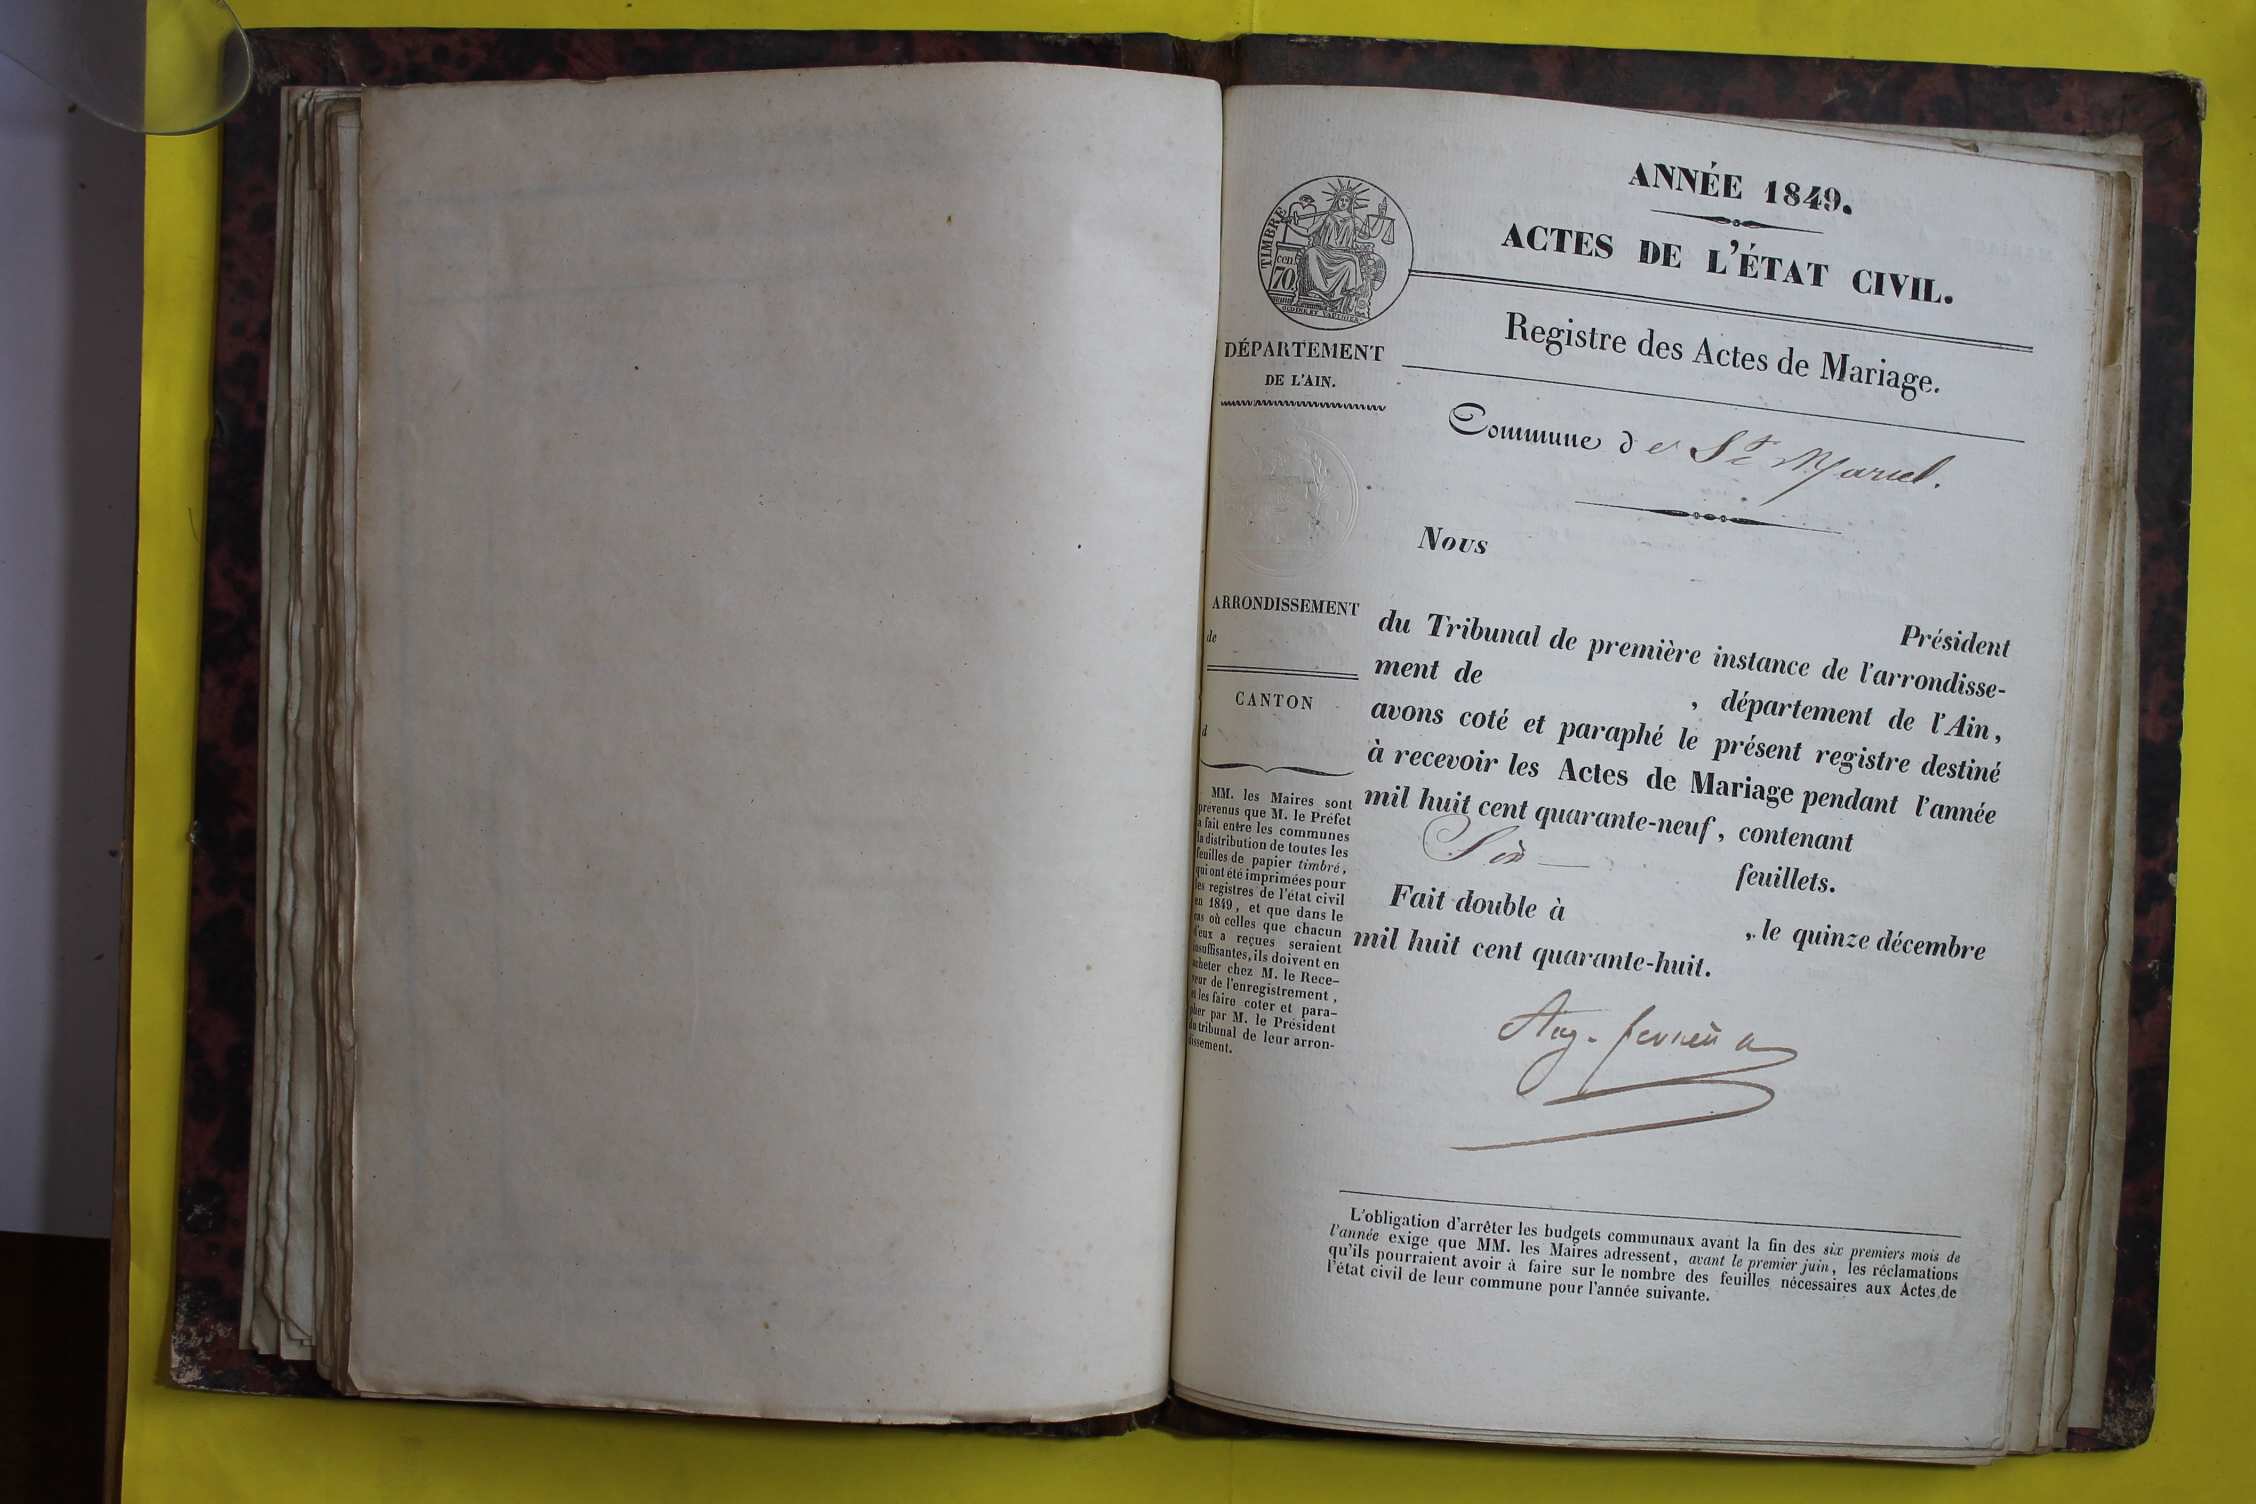 ANNÉE 1849.
ACTES DE L'ÉTAT CIVIL.
TIMBRE
cen.
70
DÉPARTEMENT
DE L'AIN.
Registre des Actes de Mariage.
Commune de St Marcel.
ARRONDISSEMENT
de
CANTON
d
MM. les Maires sont
prévenus que M. le Préfet
a fait entre les communes
la distribution de toutes les
feuilles de papier timbré,
qui ont été imprimées pour
les registres de l'état civil
en 1849, et que dans le
cas où celles que chacun
d'eux a reçues seraient
insuffisantes, ils doivent en
acheter chez M. le Rece-
veur de l'enregistrement,
et les faire coter et para-
pher par M. le Président
du tribunal de leur arron-
dissement.
Nous
Président
du Tribunal de première instance de l'arrondisse-
ment de , département de l'Ain,
avons coté et paraphé le présent registre destiné
à recevoir les Actes de Mariage pendant l'année
mil huit cent quarante-neuf, contenant
Six feuillets.
Fait double à , le quinze décembre
mil huit cent quarante-huit.
L'obligation d'arrêter les budgets communaux avant la fin des six premiers mois de
l'année exige que MM. les Maires adressent, avant le premier juin, les réclamations
qu'ils pourraient avoir à faire sur le nombre des feuilles nécessaires aux Actes de
l'état civil de leur commune pour l'année suivante.